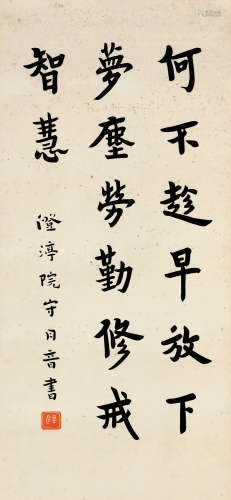 何不趁早放下
夢塵勞勤修戒
智慧
澄渟院守月音書